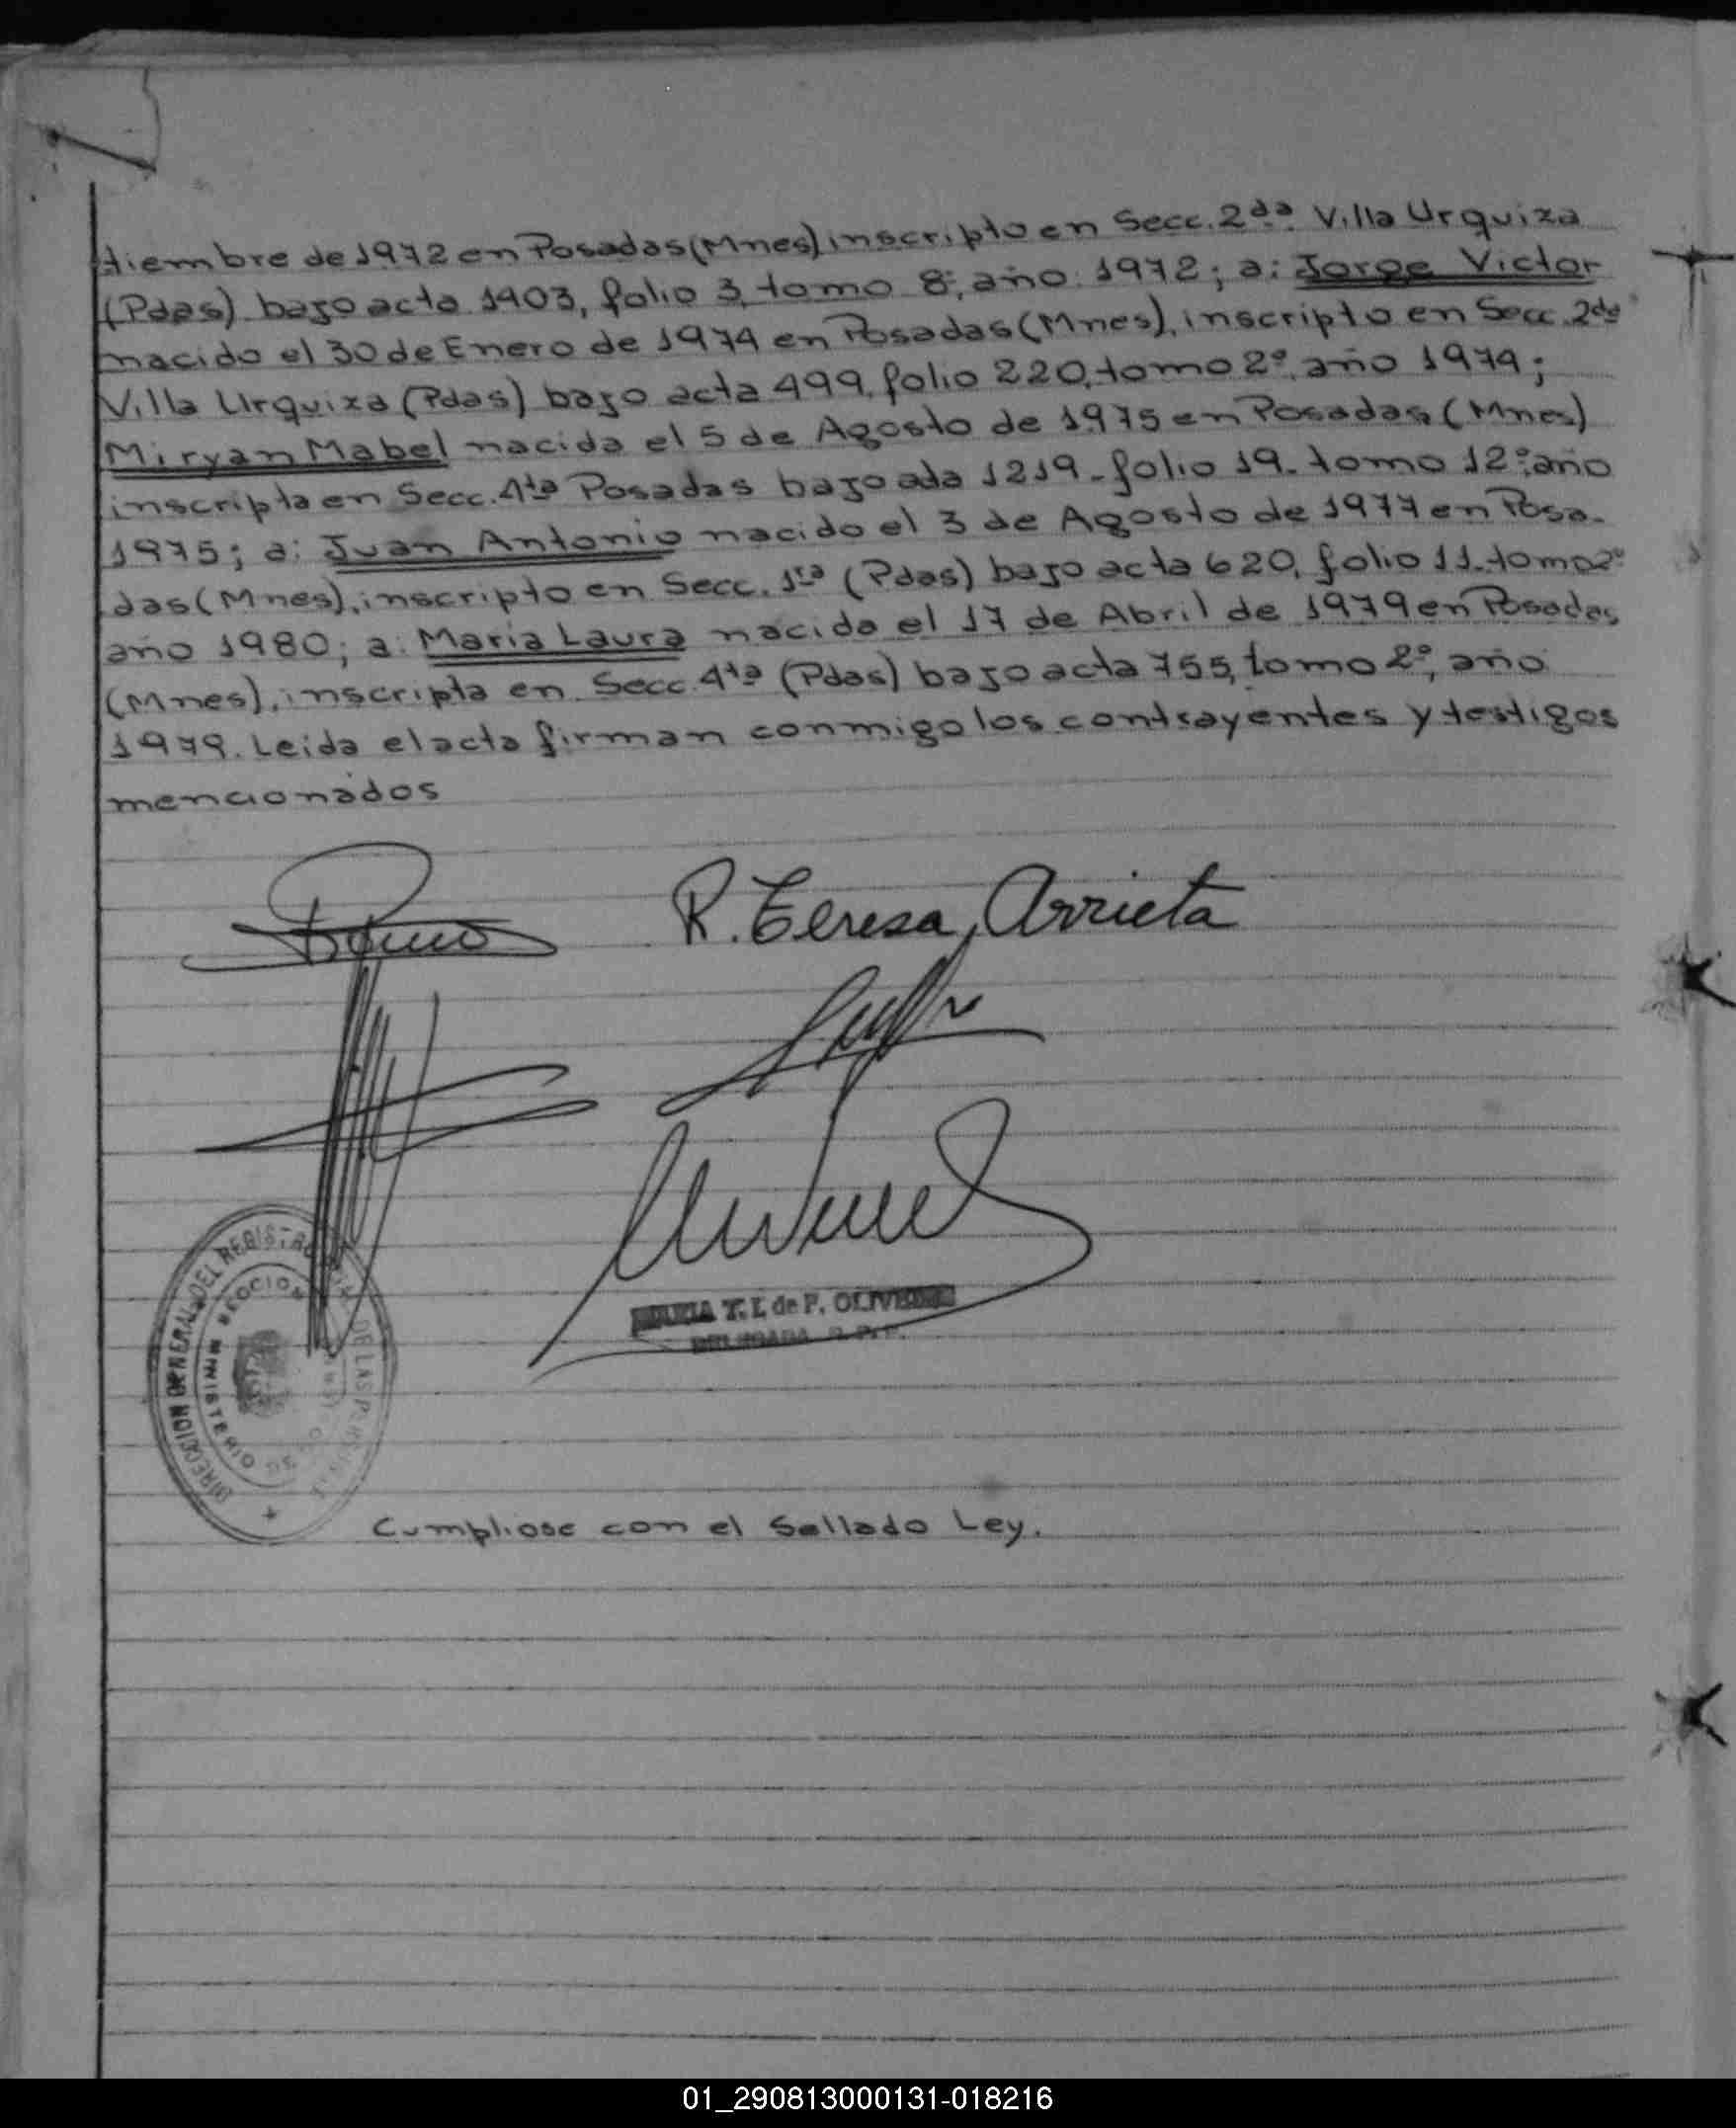 tiembre de 1972 en Posadas (Mnes) inscripto en Secc. 2da. Villa Urquiza
(Pdas) bajo acta 1403, folio 3, tomo 8º, año 1972; a: Jorge Victor
nacido el 30 de Enero de 1974 en Posadas (Mnes), inscripto en Secc. 2da
Villa Urquiza (Pdas) bajo acta 499, folio 220, tomo 2º, año 1974;
Miryan Mabel nacida el 5 de Agosto de 1975 en Posadas (Mnes)
inscripta en Secc. 4ta Posadas bajo acta 1219 - folio 19 - tomo 12º año
1975; a: Juan Antonio nacido el 3 de Agosto de 1977 en Posa-
das (Mnes), inscripto en Secc. 1ra (Pdas) bajo acta 620, folio 11 - tomo 2º
año 1980; a: Maria Laura nacida el 17 de Abril de 1979 en Posadas
(Mnes), inscripta en Secc. 4ta (Pdas) bajo acta 755, tomo 2º, año
1979. Leida el acta firman conmigo los contrayentes y testigos
mencionados
R. Teresa Arrieta
MARIA T. I. de F. OLIVEIRA
DELEGADA R. P. P.
DIRECCION GENERAL DEL REGISTRO DE LAS PERSONAS
SECCION
MINISTERIO DE
Cumpliose con el Sellado Ley.
01_290813000131-018216